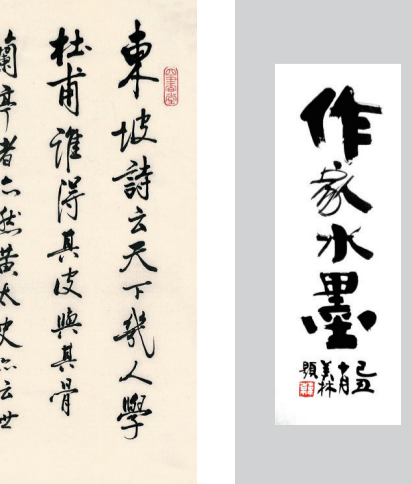 東坡詩云天下幾人學
杜甫誰得其皮與其骨
蘭亭者亦然黄太史亦云世
作家水墨
己丑
十月
美林
題